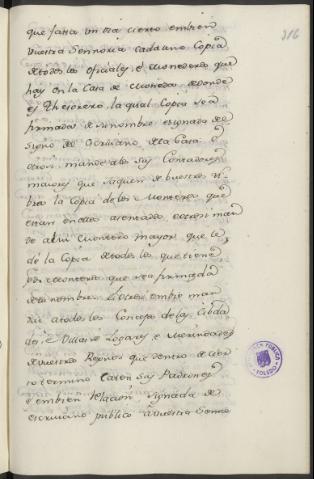 316
que fasta un dia cierto embien
Vuestra Sennoria cada uno Copia
de todos los oficiales, e Monederos que
hay en la Casa de Moneda de donde
es Thesorero, la qual Copia sea
firmada de su nombre e signada de
Signo de Escrivano de la Casa e
otrosi mande a los sus Contadores
maiores que saquen de vuestros li
bros la Copia de los Monteros que
estan en ellos asentados, e otrosi man
de a su Montero mayor que le
dé la Copia de todos los que tiene
por Monteros que sea firmada
de su nombre. E otrosi embie man
dar a todos los Concejos de las Cibda
des, e Villas e Logares e Merindades
de vuestros Regnos que dentro de cier
to termino caten sus Padrones
e embien relacion signada de
escrivano publico a Vuestra Senno
PUBLICA
TOLEDO